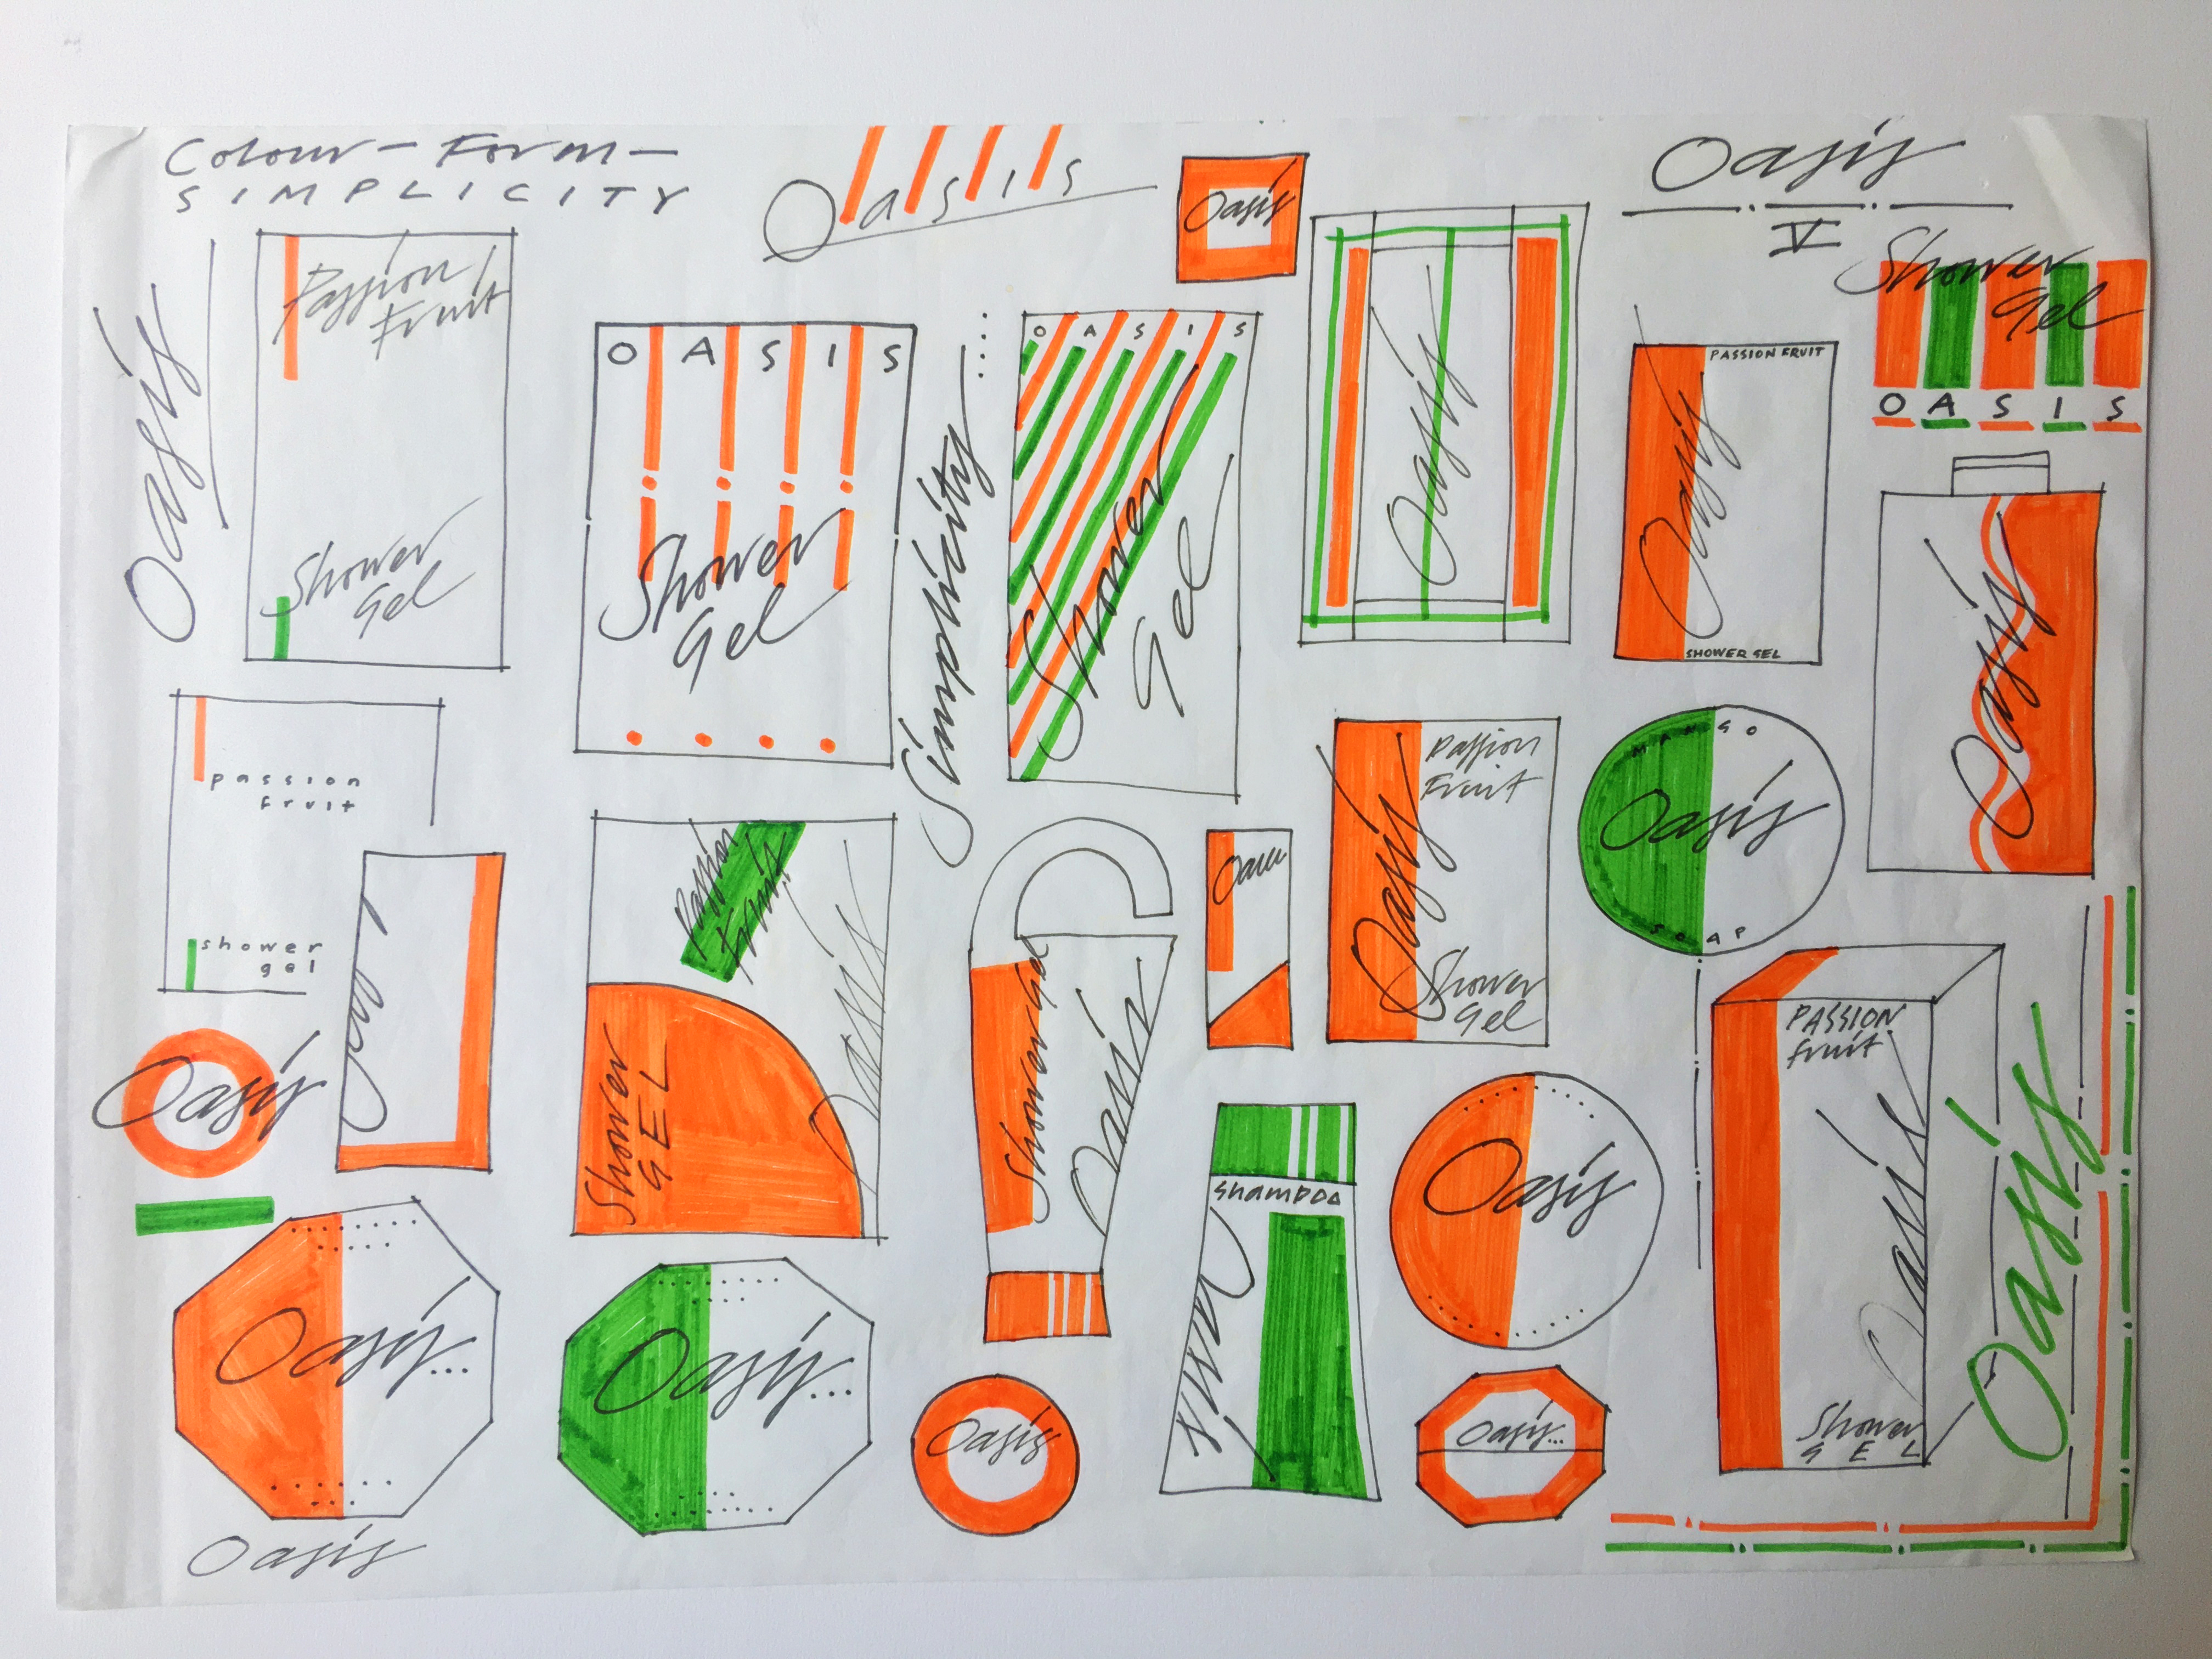 Colour - Form -
SIMPLICITY
Oasis
Oasis
Oasis
V
Oasis
Passion
Fruit
Shower
Gel
OASIS
Shower
Gel
Simplicity....
OASIS
Shower
Gel
Oasis
PASSION FRUIT
Oasis
SHOWER GEL
Shower
Gel
OASIS
Oasis
passion
fruit
shower
gel
Passion
Fruit
Oasis
Shower
GEL
Shower Gel
Oasis
Oasis
Passion
Fruit
Oasis
Shower
Gel
MANGO
Oasis
SOAP
PASSION
fruit
Oasis
Shower
GEL
Oasis
Oasis
shampoo
Oasis
Oasis
Oasis...
Oasis...
Oasis
Oasis...
Oasis